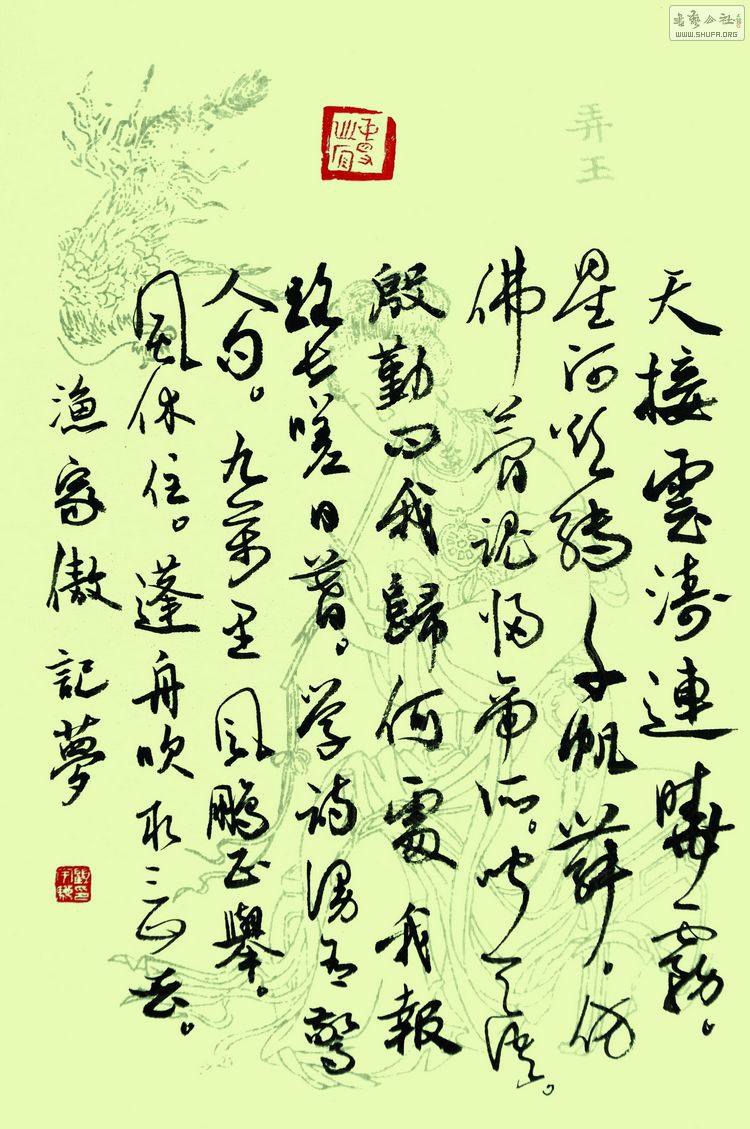 書藝公社
WWW.SHUFA.ORG
弄玉
天接雲濤連曉霧。
星河欲轉千帆舞。仿
佛夢魂歸帝所。聞天語。
殷勤問我歸何處我報
路長嗟日暮。学詩漫有驚
人句。九萬里風鵬正舉。
風休住。蓬舟吹取三山去。
漁家傲記夢